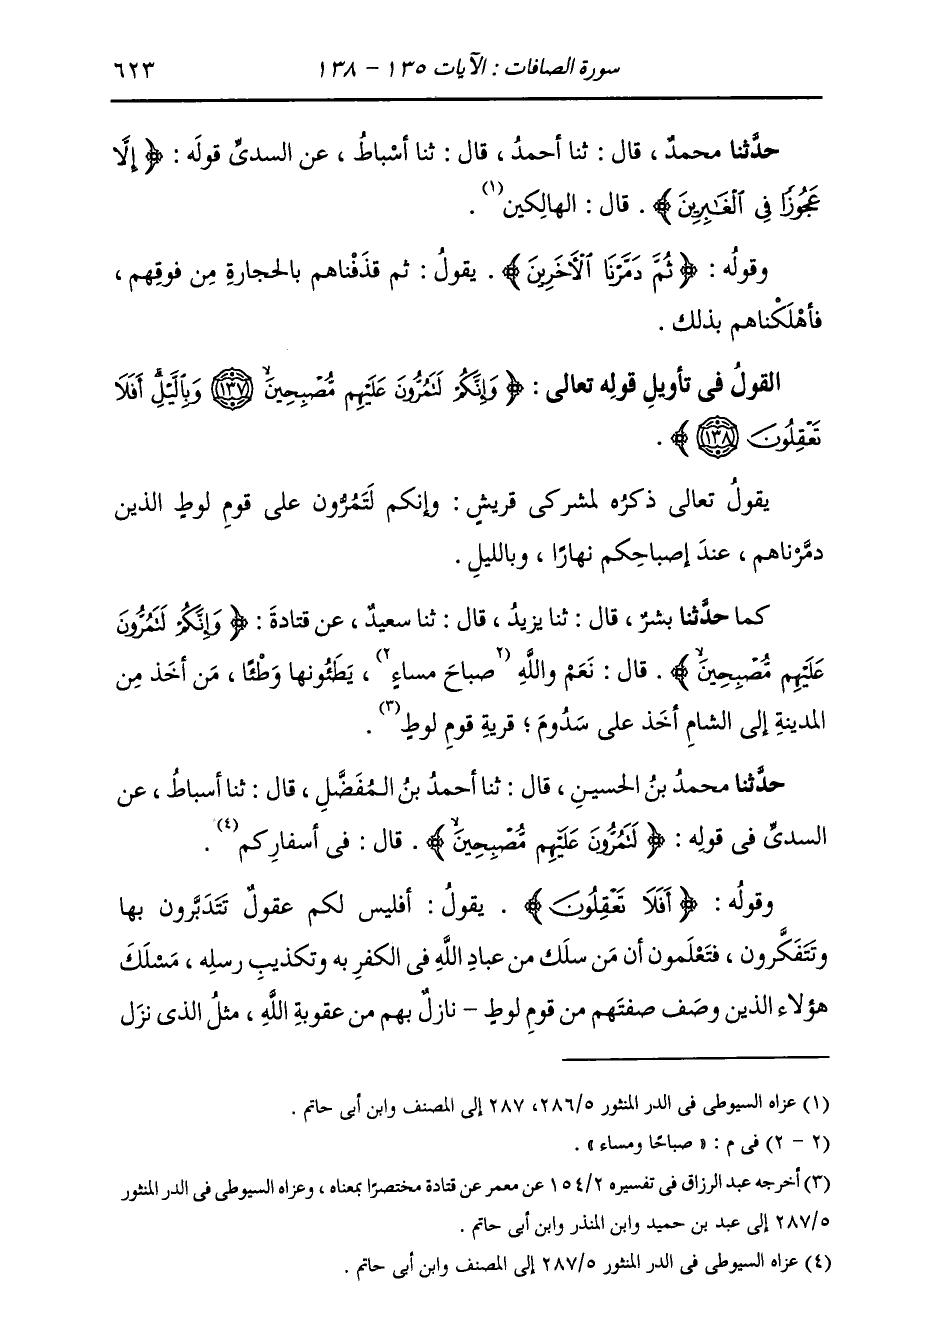 سورة الصافات : الآيات ١٣٥ - ١٣٨ ٦٢٣
حدَّثنا محمدٌ ، قال : ثنا أحمدُ ، قال : ثنا أسْباطُ ، عن السدىِّ قولَه : ﴿ إِلَّا
عَجُوزًا فِى ٱلْغَٰبِرِينَ ﴾ . قال : الهالِكين(١) .
وقولُه : ﴿ ثُمَّ دَمَّرْنَا ٱلْأَخَرِينَ ﴾ . يقولُ : ثم قذَفْناهم بالحجارةِ مِن فوقِهم ،
فأهْلَكْناهم بذلك .
القولُ فى تأويلِ قولِه تعالى : ﴿ وَإِنَّكُمْ لَنَمُرُّونَ عَلَيْهِم مُّصْبِحِينَۙ ١٣٧ وَبِٱلَّيْلِۗ أَفَلَا
تَعْقِلُونَ ١٣٨ ﴾ .
يقولُ تعالى ذكرُه لمشركى قريشٍ : وإنكم لَتَمُرُّون على قومِ لوطٍ الذين
دمَّرْناهم ، عندَ إصباحِكم نهارًا ، وبالليلِ .
كما حدَّثنا بشرٌ ، قال : ثنا يزيدُ ، قال : ثنا سعيدٌ ، عن قتادةَ : ﴿ وَإِنَّكُمْ لَنَمُرُّونَ
عَلَيْهِم مُّصْبِحِينَۙ ﴾ . قال : نَعَمْ واللَّهِ (٢صباحَ مساءٍ٢) ، يَطَئُونها وَطْئًا ، مَن أخَذ مِن
المدينةِ إلى الشامِ أخَذ على سَدُومَ ؛ قريةِ قومِ لوطٍ(٣) .
حدَّثنا محمدُ بنُ الحسينِ ، قال : ثنا أحمدُ بنُ المُفَضَّلِ ، قال : ثنا أسباطُ ، عن
السدىِّ فى قولِه : ﴿ لَنَمُرُّونَ عَلَيْهِم مُّصْبِحِينَۙ ﴾ . قال : فى أسفارِكم(٤) .
وقولُه : ﴿ أَفَلَا تَعْقِلُونَ ﴾ . يقولُ : أفليس لكم عقولٌ تَتَدَبَّرون بها
وتَتَفَكَّرون ، فتَعْلَمون أن مَن سلَك من عبادِ اللَّهِ فى الكفرِ به وتكذيبِ رسلِه ، مَسْلَكَ
هؤلاء الذين وصَف صفتَهم من قومِ لوطٍ - نازلٌ بهم من عقوبةِ اللَّهِ ، مثلُ الذى نزَل
(١) عزاه السيوطى فى الدر المنثور ٢٨٦/٥، ٢٨٧ إلى المصنف وابن أبى حاتم .
(٢ - ٢) فى م : « صباحًا ومساء » .
(٣) أخرجه عبد الرزاق فى تفسيره ١٥٤/٢ عن معمر عن قتادة مختصرًا بمعناه ، وعزاه السيوطى فى الدر المنثور
٢٨٧/٥ إلى عبد بن حميد وابن المنذر وابن أبى حاتم .
(٤) عزاه السيوطى فى الدر المنثور ٢٨٧/٥ إلى المصنف وابن أبى حاتم .